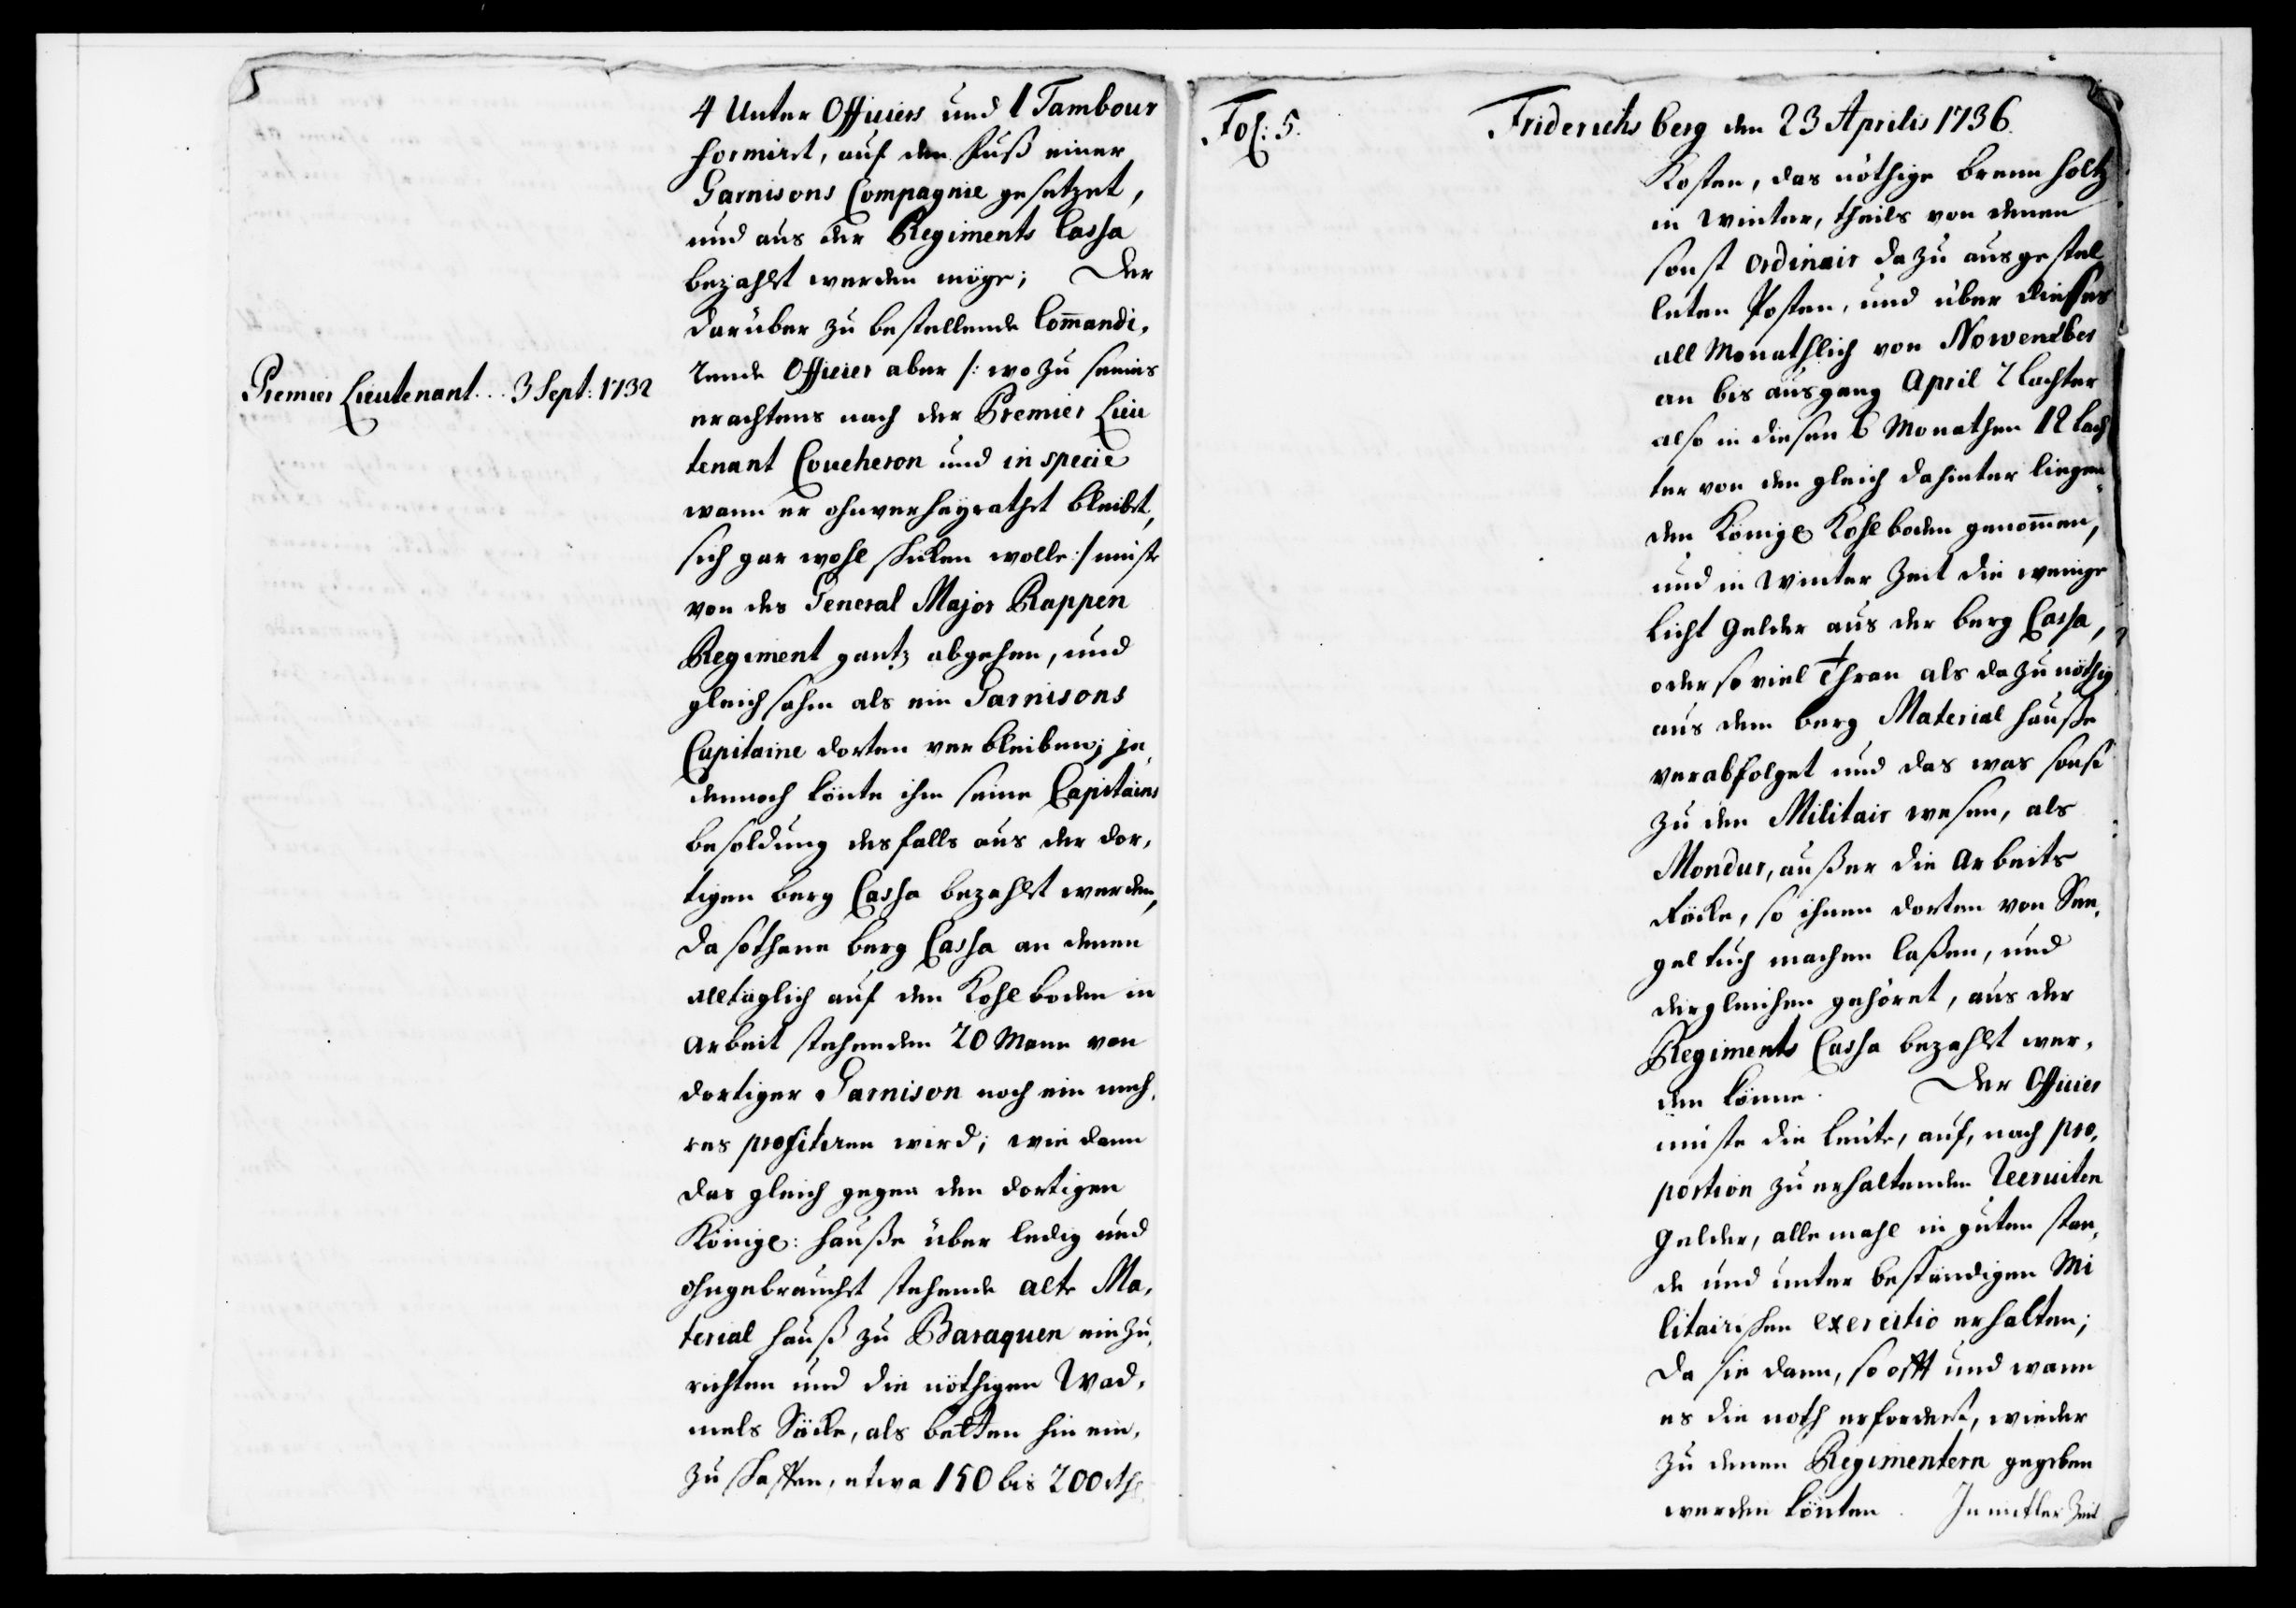 4 Unter Officiers und 1 Tambour
formiret, auf den Fuß einer
Garnisons Compagnie gesetzet,
und aus der Regiments Cassa
bezahlt werden möge; Der
darüber zu bestellende Com̄andi,
rende Officier aber /: wozu seines
Premier Lieutenant... 3 Sept: 1732
erachtens nach der Premier Lieu
tenant Coucheron und in specie
wann er ohnverheyrathet bleibet,
sich gar wohl schicken wolle :/ müste
von des General Major Rappen
Regiment gantz abgehen, und
gleichsahm als ein Garnisons
Capitaine dorten verbleiben; je,
dennoch könte ihm seine Capitains
besoldung desfalls aus der dor,
tigen berg Cassa bezahlt werden,
da sothane berg Cassa an denen
alltäglich auf den Kohlboden in
Arbeit stehenden 20 Mann von
dortiger Garnison noch ein meh,
res profiteren wird; wie dann
das gleich gegen den dortigen
Königl: Hauße über ledig und
ohngebraucht stehende alte Ma,
terial Hauß zu Baraquen einzu,
richten und die nöthigen Wad,
mels Säcke, als betten hin ein,
zu schaffen, etwa 150 bis 200 rthl
Fol: 5.
Friderichs berg den 23 Aprilis 1736.
Kosten, das nöthige brenn holtz
in Winter, theils von denen
sonst ordinair dazu ausgestel
leten Posten, und über dießes
all Monathlich von November
an bis ausgang April 2 lachter
also in diesen 6 Monathen 12 lach
ter von den gleich dahinter liegen,
den Königl Kohlboden genom̄en,
und in Winter Zeit die wenige
licht Gelder aus der berg Cassa,
oder so viel Thran als dazu nöthig
aus dem berg Material Hauße
verabfolget und das was sonst
zu den Militair wesen, als
Mondur, außer die Arbeits
Röcke, so ihnen dorten von See,
gel tuch machen laßen, und
dergleichen gehöret, aus der
Regiments Cassa bezahlt wer,
den könne. Der Officier
müste die leute, auf, nach pro,
portion zu erhaltenden Recruiten
Gelder, alle mahl in guten stan,
de und unter beständigen Mi
litairischen exercitio erhalten;
Da sie dann, so offt und wann
es die noth erfordert, wieder
zu denen Regimentern gegeben
werden könten. In mitler Zeit